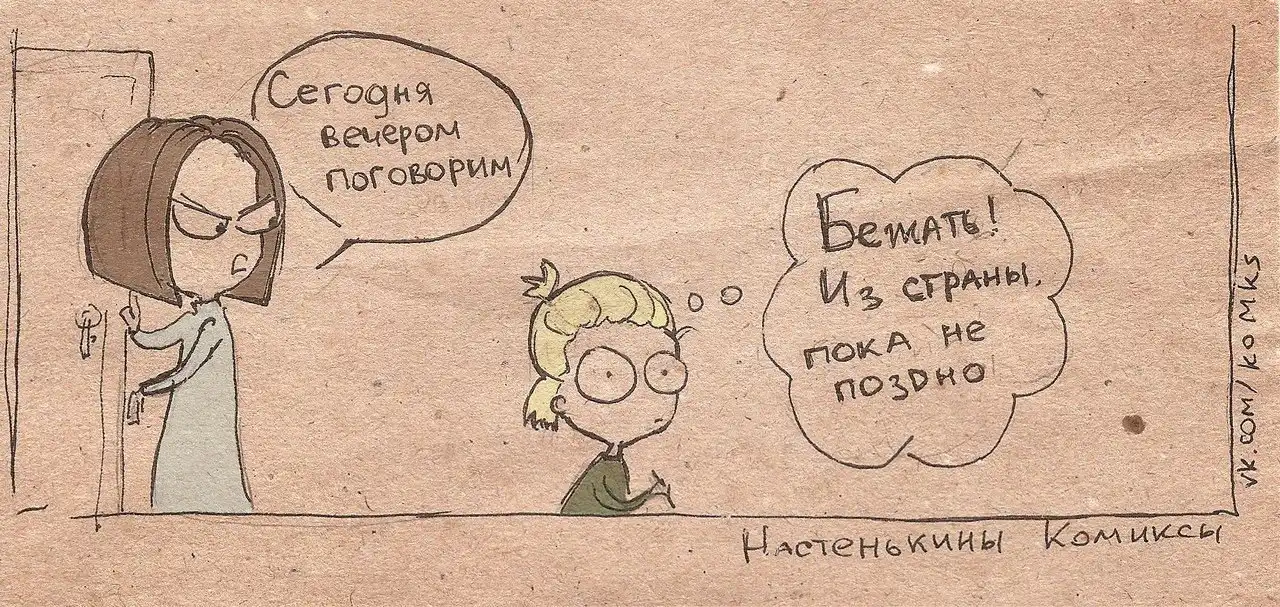 Сегодня
вечером
поговорим
Бежать!
Из страны.
пока не
поздно
Настенькины Комиксы
vk.com/komks